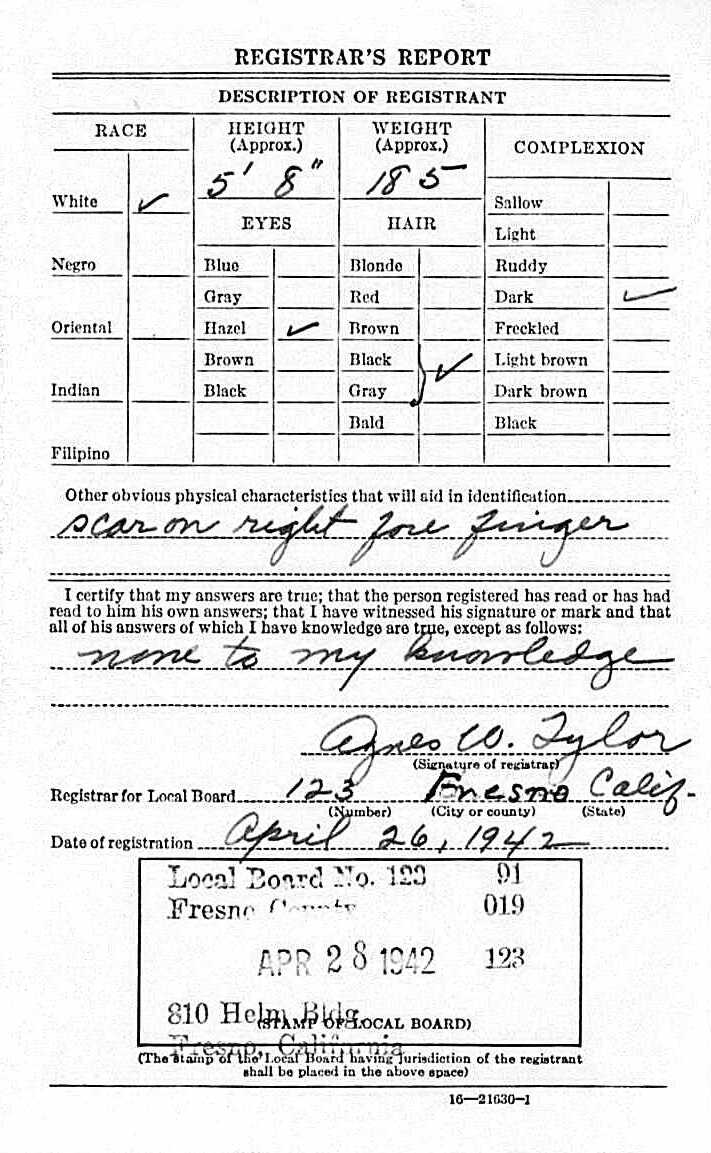 REGISTRAR'S REPORT
DESCRIPTION OF REGISTRANT
RACE
HEIGHT
(Approx.)
WEIGHT
(Approx.)
COMPLEXION
5' 8"
185
White ✓
Sallow
EYES
HAIR
Light
Negro
Blue
Blonde
Ruddy
Gray
Red
Dark ✓
Oriental
Hazel ✓
Brown
Freckled
Brown
Black ✓
Light brown
Indian
Black
Gray
Dark brown
Bald
Black
Filipino
Other obvious physical characteristics that will aid in identification
scar on right fore finger
I certify that my answers are true; that the person registered has read or has had
read to him his own answers; that I have witnessed his signature or mark and that
all of his answers of which I have knowledge are true, except as follows:
none to my knowledge
Agnes W. Tylor
(Signature of registrar)
Registrar for Local Board 123 Fresno Calif.
(Number) (City or county) (State)
Date of registration April 26, 1942
Local Board No. 123 91
Fresno County 019
APR 28 1942 123
810 Helm Bldg.
(STAMP OF LOCAL BOARD)
Fresno, California
(The stamp of the Local Board having jurisdiction of the registrant
shall be placed in the above space)
16—21630-1